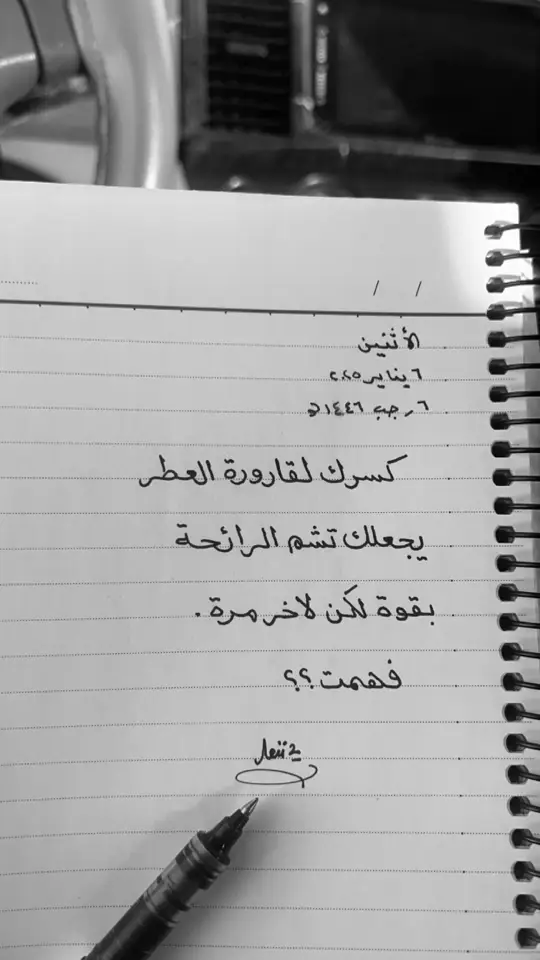 / /
الأثنين
٦ يناير ٢٠٢٥
٦ رجب ١٤٤٦ه
كسرك لقارورة العطر
يجعلك تشم الرائحة
بقوة لكن لاخر مرة.
فهمت؟؟